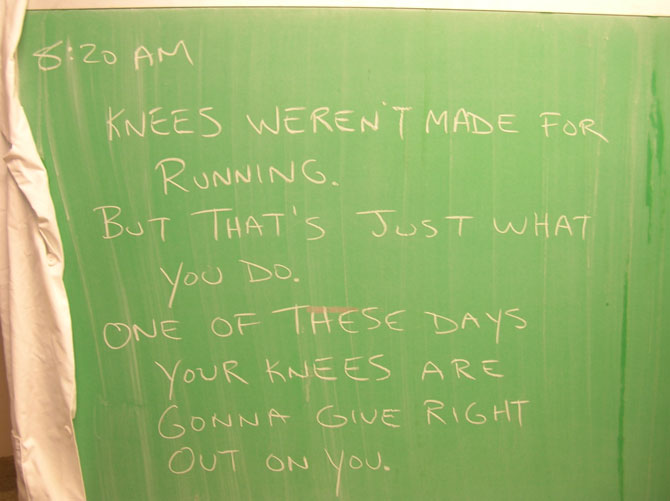 8:20 AM
KNEES WEREN'T MADE FOR
RUNNING.
BUT THAT'S JUST WHAT
YOU DO.
ONE OF THESE DAYS
YOUR KNEES ARE
GONNA GIVE RIGHT
OUT ON YOU.